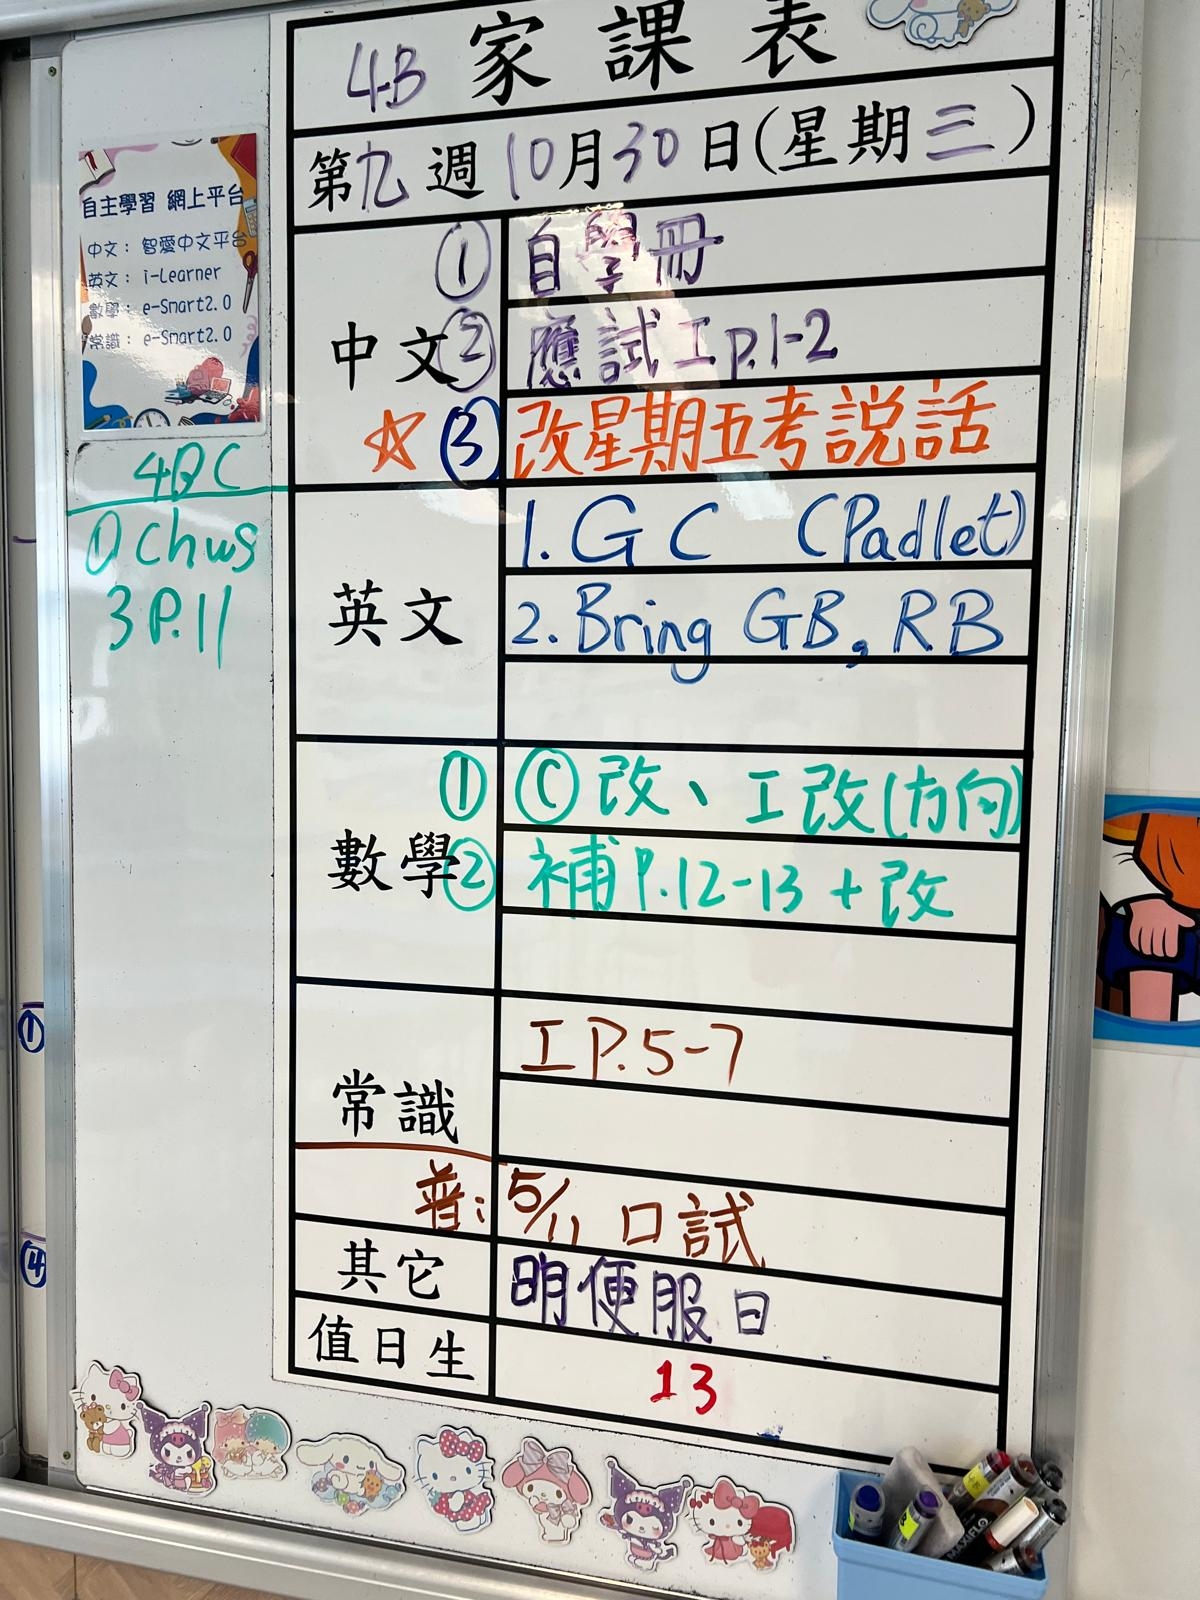 4B 家課表
第九週 10月30日(星期三)
自主學習 網上平台
中文：智愛中文平台
英文：i-Learner
數學：e-Smart2.0
常識：e-Smart2.0
4BC
① Chws
3 P.11
中文
① 自學冊
② 應試工p.1-2
☆ ③ 改星期五考説話
英文
1. GC (Padlet)
2. Bring GB, RB
數學
① Ⓒ改、工改(方向)
② 補P.12-13 + 改
常識
工P.5-7
普: 5/11 口試
其它
明便服日
值日生
13
①
④
MAXIFLO